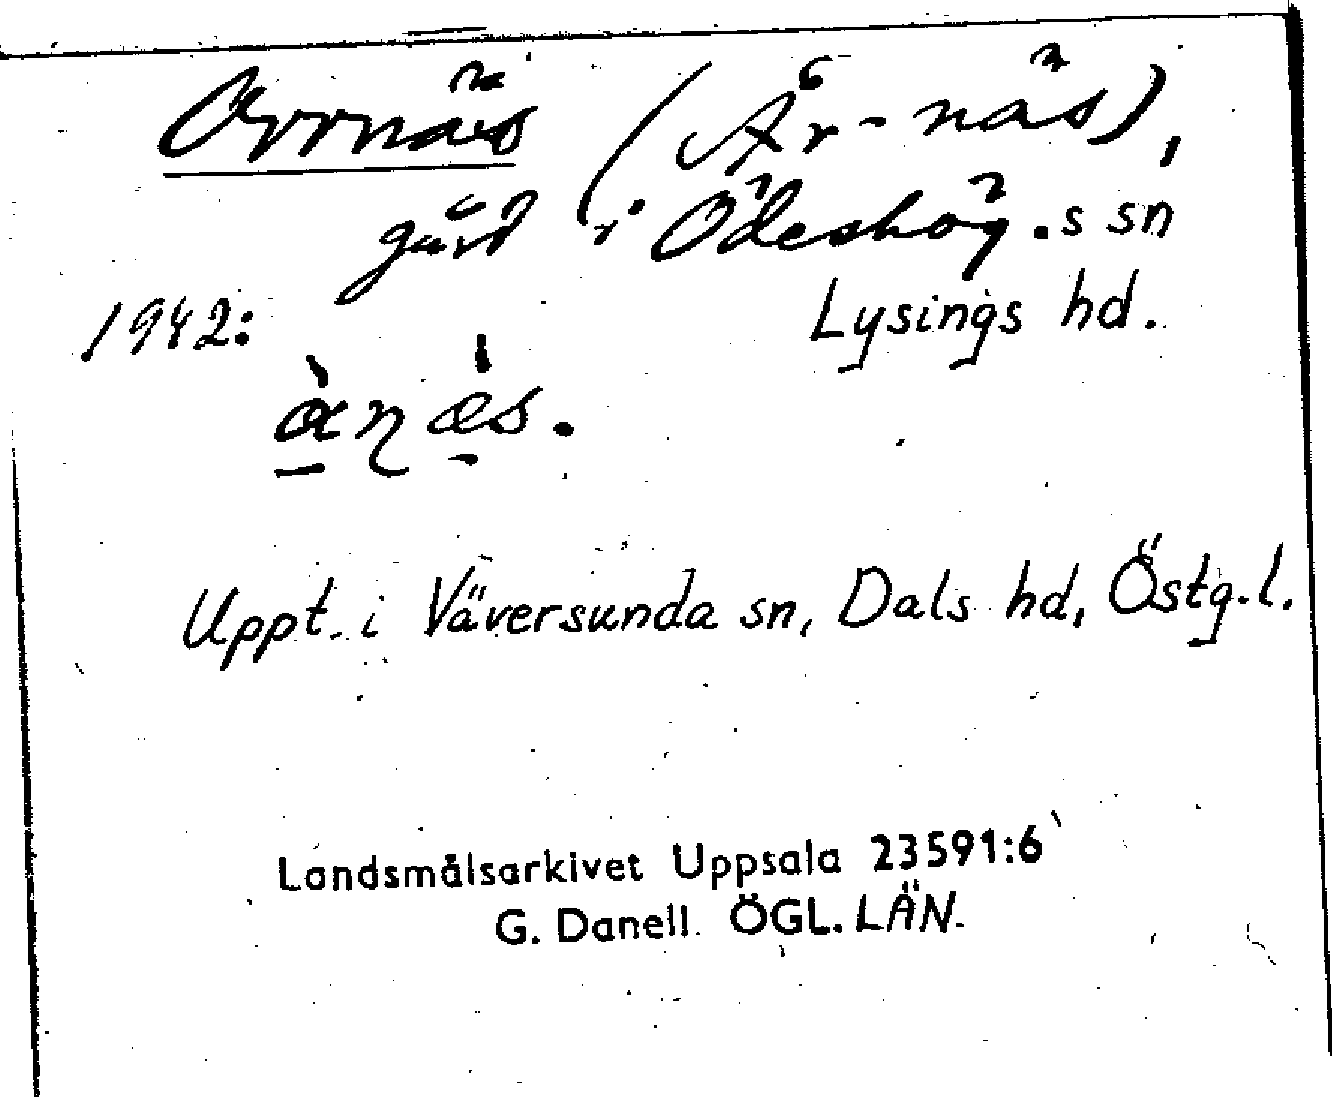 Orrnäs (År-näs),
gård i Ödeshög.s sn
1942: Lysings hd.
Uppt. i Väversunda sn, Dals hd, Östg.l.
Landsmålsarkivet Uppsala 23591:6
G. Danell. ÖGL. LÄN.